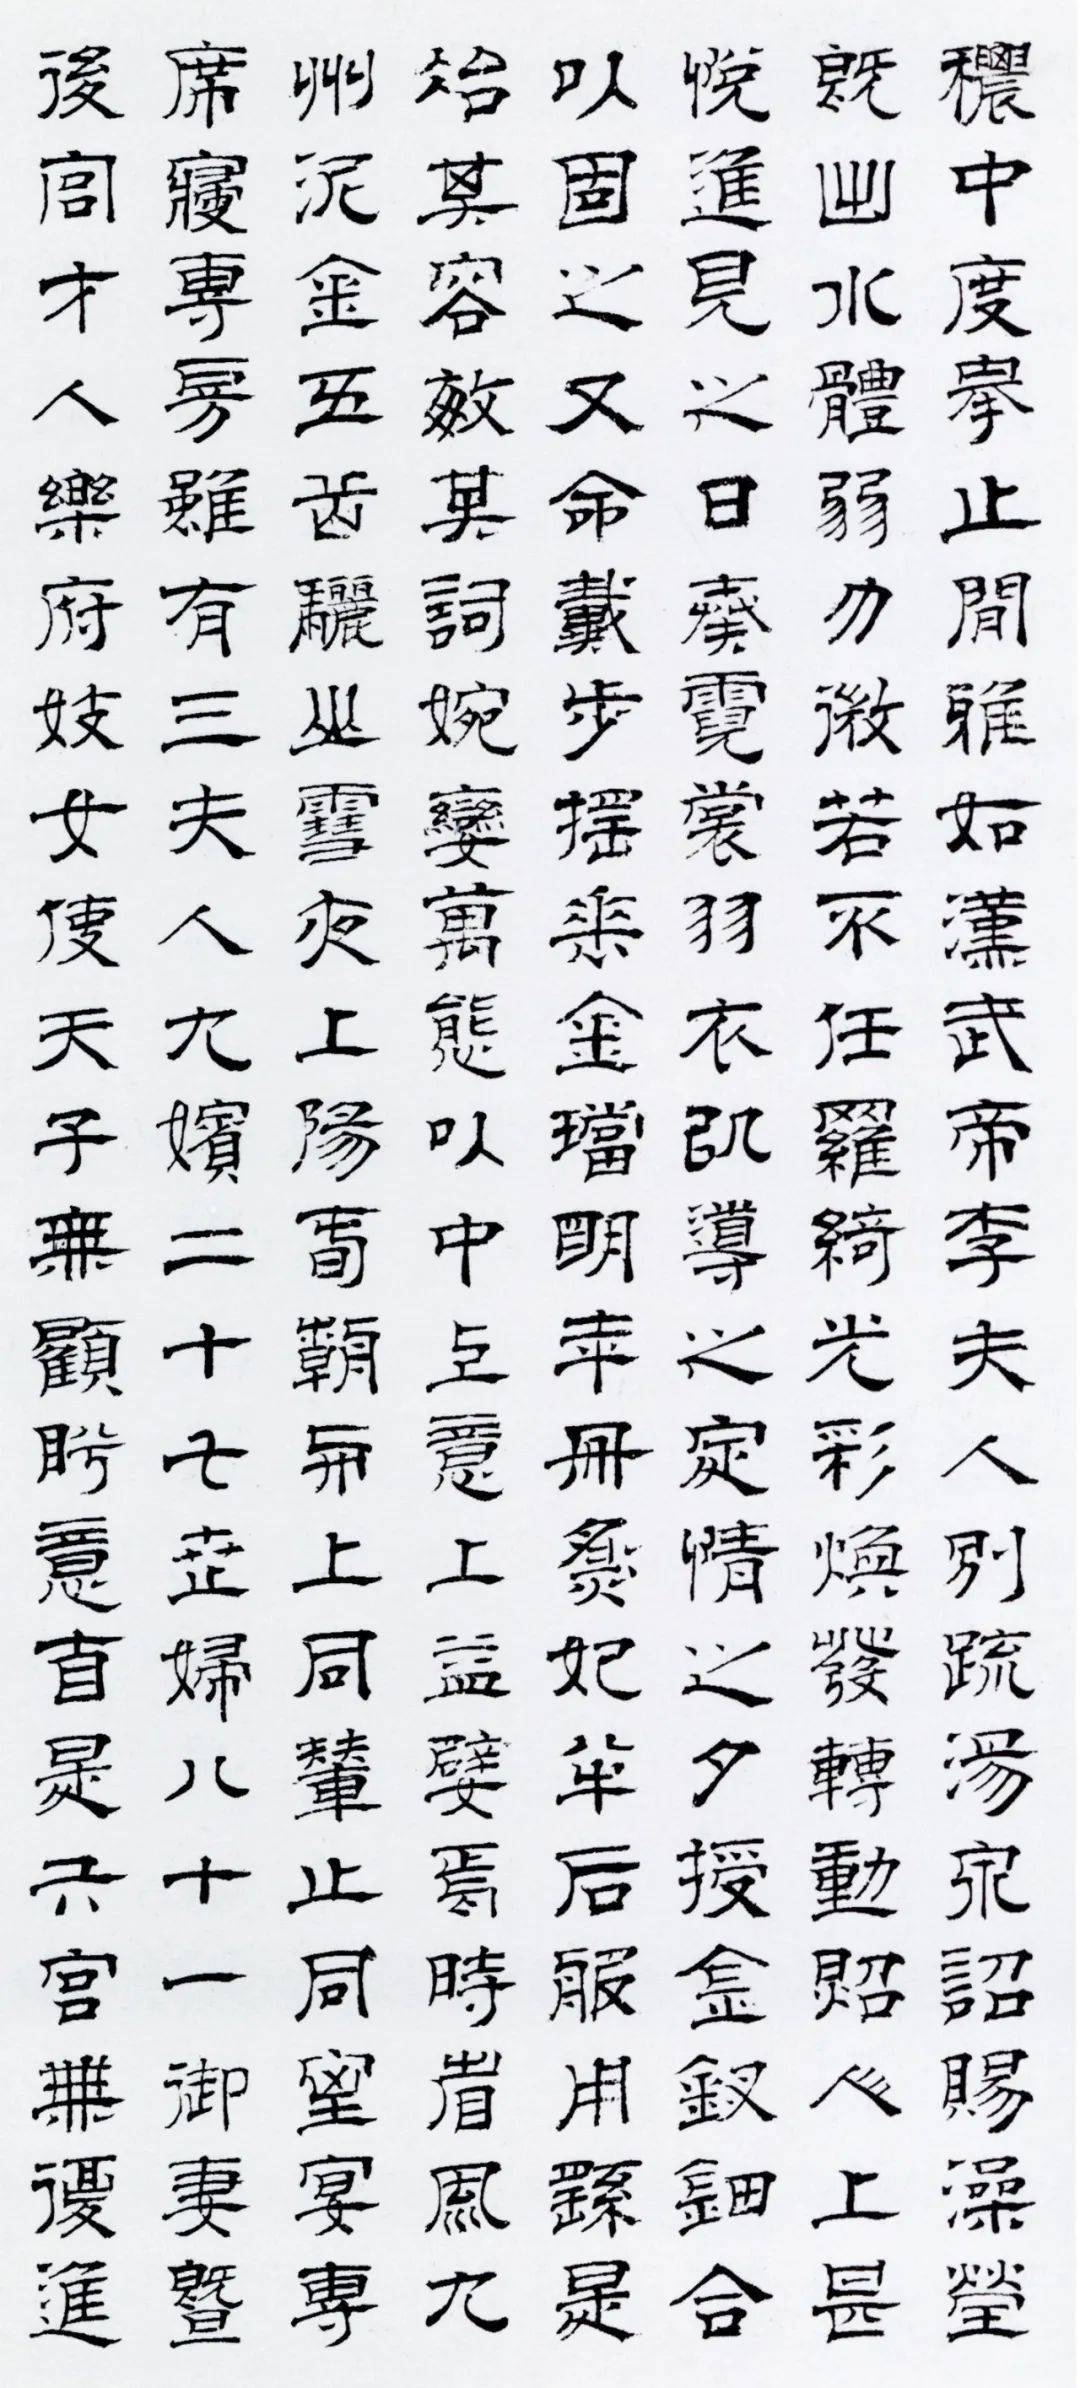 穠中度舉止閒雅如漢武帝李夫人別疏湯泉詔賜澡瑩
既出水體弱力微若不任羅綺光彩煥發轉動照人上甚
悅進見之日奏霓裳羽衣以導之定情之夕授金釵鈿合
以固之又命戴步搖垂金璫明年冊為妃半后服用繇是
冶其容敏其詞婉孌萬態以中上意上益嬖焉時省風九
州泥金五岳驪山雪夜上陽春朝與上同輦止同室宴專
席寢專房雖有三夫人九嬪二十七世婦八十一御妻暨
後宮才人樂府妓女使天子無顧盼意自是六宮無復進